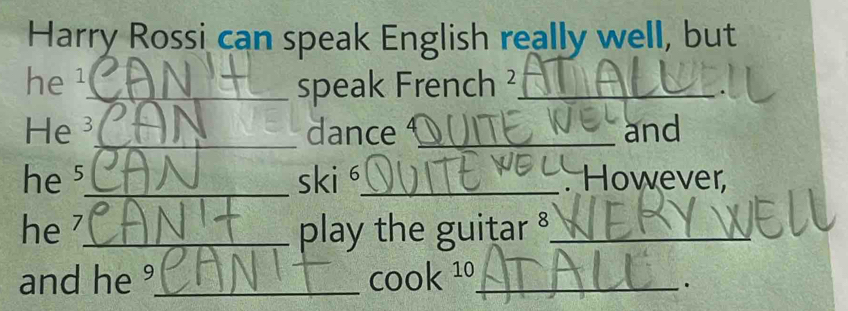 Harry Rossi can speak English really well, but
he ¹ CAN't speak French ² AT ALL.
He ³ CAN dance ⁴ QUITE WELL and
he ⁵ CAN ski ⁶ QUITE WELL. However,
he ⁷ CAN't play the guitar ⁸ WERY WELL
and he ⁹ CAN't cook ¹⁰ AT ALL.